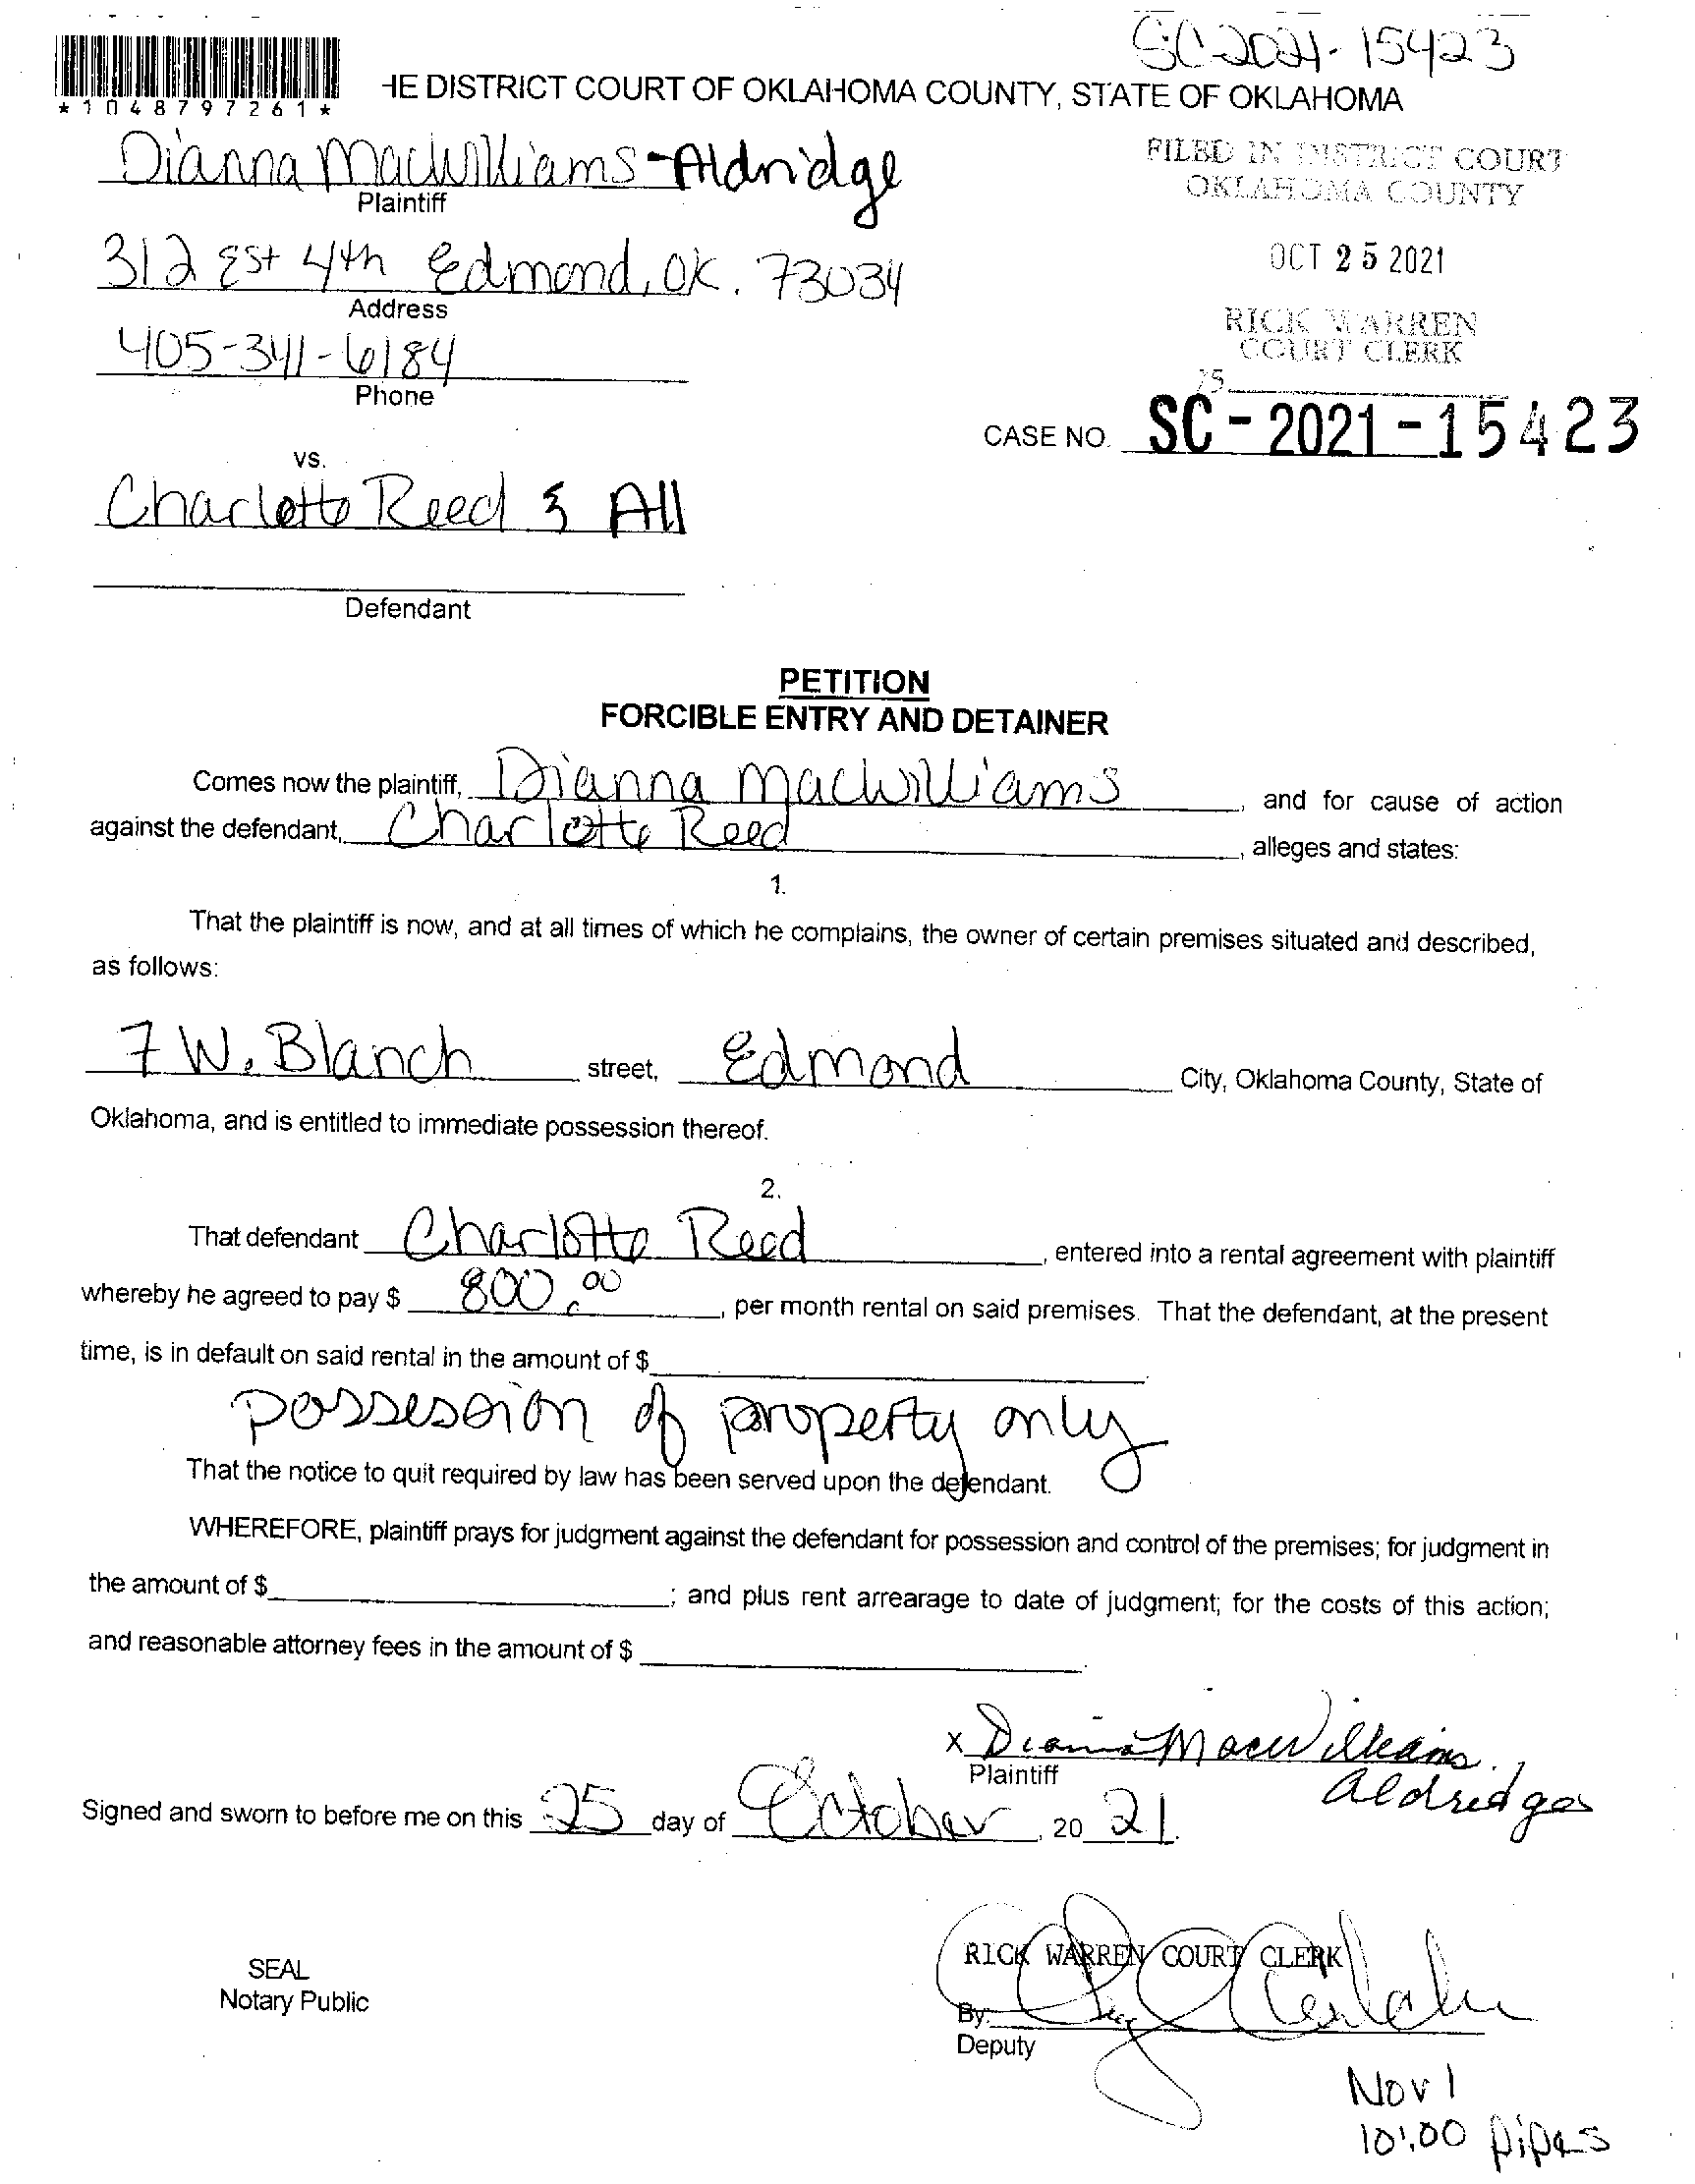 SC 2021-15423
*1048797261*
HE DISTRICT COURT OF OKLAHOMA COUNTY, STATE OF OKLAHOMA
Dianna MacWilliams-Aldridge
Plaintiff
FILED IN DISTRICT COURT
OKLAHOMA COUNTY
312 Est 4th Edmond, OK. 73034
Address
OCT 25 2021
405-341-6184
Phone
RICK WARREN
COURT CLERK
CASE NO. SC-2021-15423
vs.
Charlotte Reed & All
Defendant
PETITION
FORCIBLE ENTRY AND DETAINER
Comes now the plaintiff, Dianna MacWilliams, and for cause of action
against the defendant, Charlotte Reed, alleges and states:
1.
That the plaintiff is now, and at all times of which he complains, the owner of certain premises situated and described,
as follows:
7 W. Blanch street, Edmond City, Oklahoma County, State of
Oklahoma, and is entitled to immediate possession thereof.
2.
That defendant Charlotte Reed, entered into a rental agreement with plaintiff
whereby he agreed to pay $ 800.00, per month rental on said premises. That the defendant, at the present
time, is in default on said rental in the amount of $
possession of property only
That the notice to quit required by law has been served upon the defendant.
WHEREFORE, plaintiff prays for judgment against the defendant for possession and control of the premises; for judgment in
the amount of $ ; and plus rent arrearage to date of judgment; for the costs of this action;
and reasonable attorney fees in the amount of $ .
x Dianna MacWilliams
Plaintiff
Aldredge
Signed and sworn to before me on this 25 day of October, 20 21.
SEAL
Notary Public
RICK WARREN COURT CLERK
By:
Deputy
Nov 1
10:00 pipes